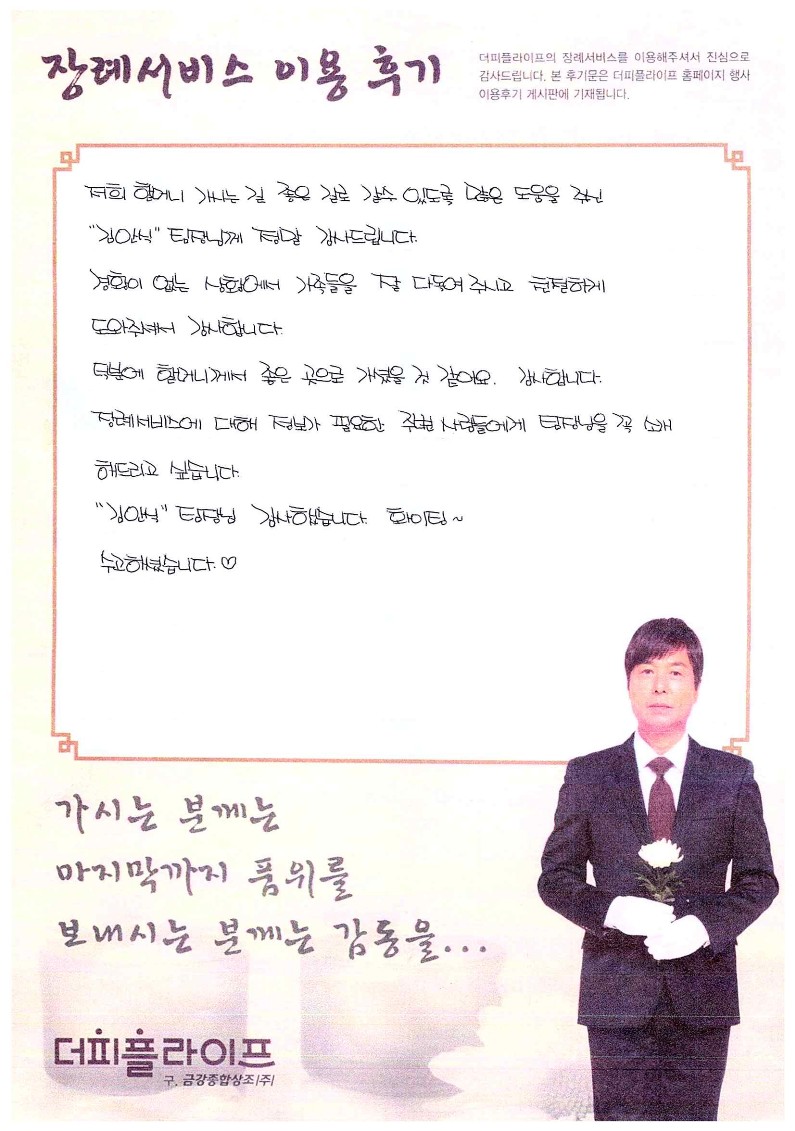 장례서비스 이용 후기
더피플라이프의 장례서비스를 이용해주셔서 진심으로
감사드립니다. 본 후기문은 더피플라이프 홈페이지 행사
이용후기 게시판에 기재됩니다.
저희 할머니 가시는 길 좋은 길로 갈수 있도록 많은 도움을 주신
"김안식" 팀장님께 정말 감사드립니다.
경황이 없는 상황에서 가족들을 잘 다독여 주시고 친절하게
도와주셔서 감사합니다.
덕분에 할머니께서 좋은 곳으로 가셨을 것 같아요. 감사합니다.
장례서비스에 대해 정보가 필요한 주변 사람들에게 팀장님을 꼭 소개
해드리고 싶습니다.
"김안식" 팀장님 감사했습니다. 화이팅~
수고하셨습니다.♡
가시는 분께는
마지막까지 품위를
보내시는 분께는 감동을...
더피플라이프
구. 금강종합상조(주)